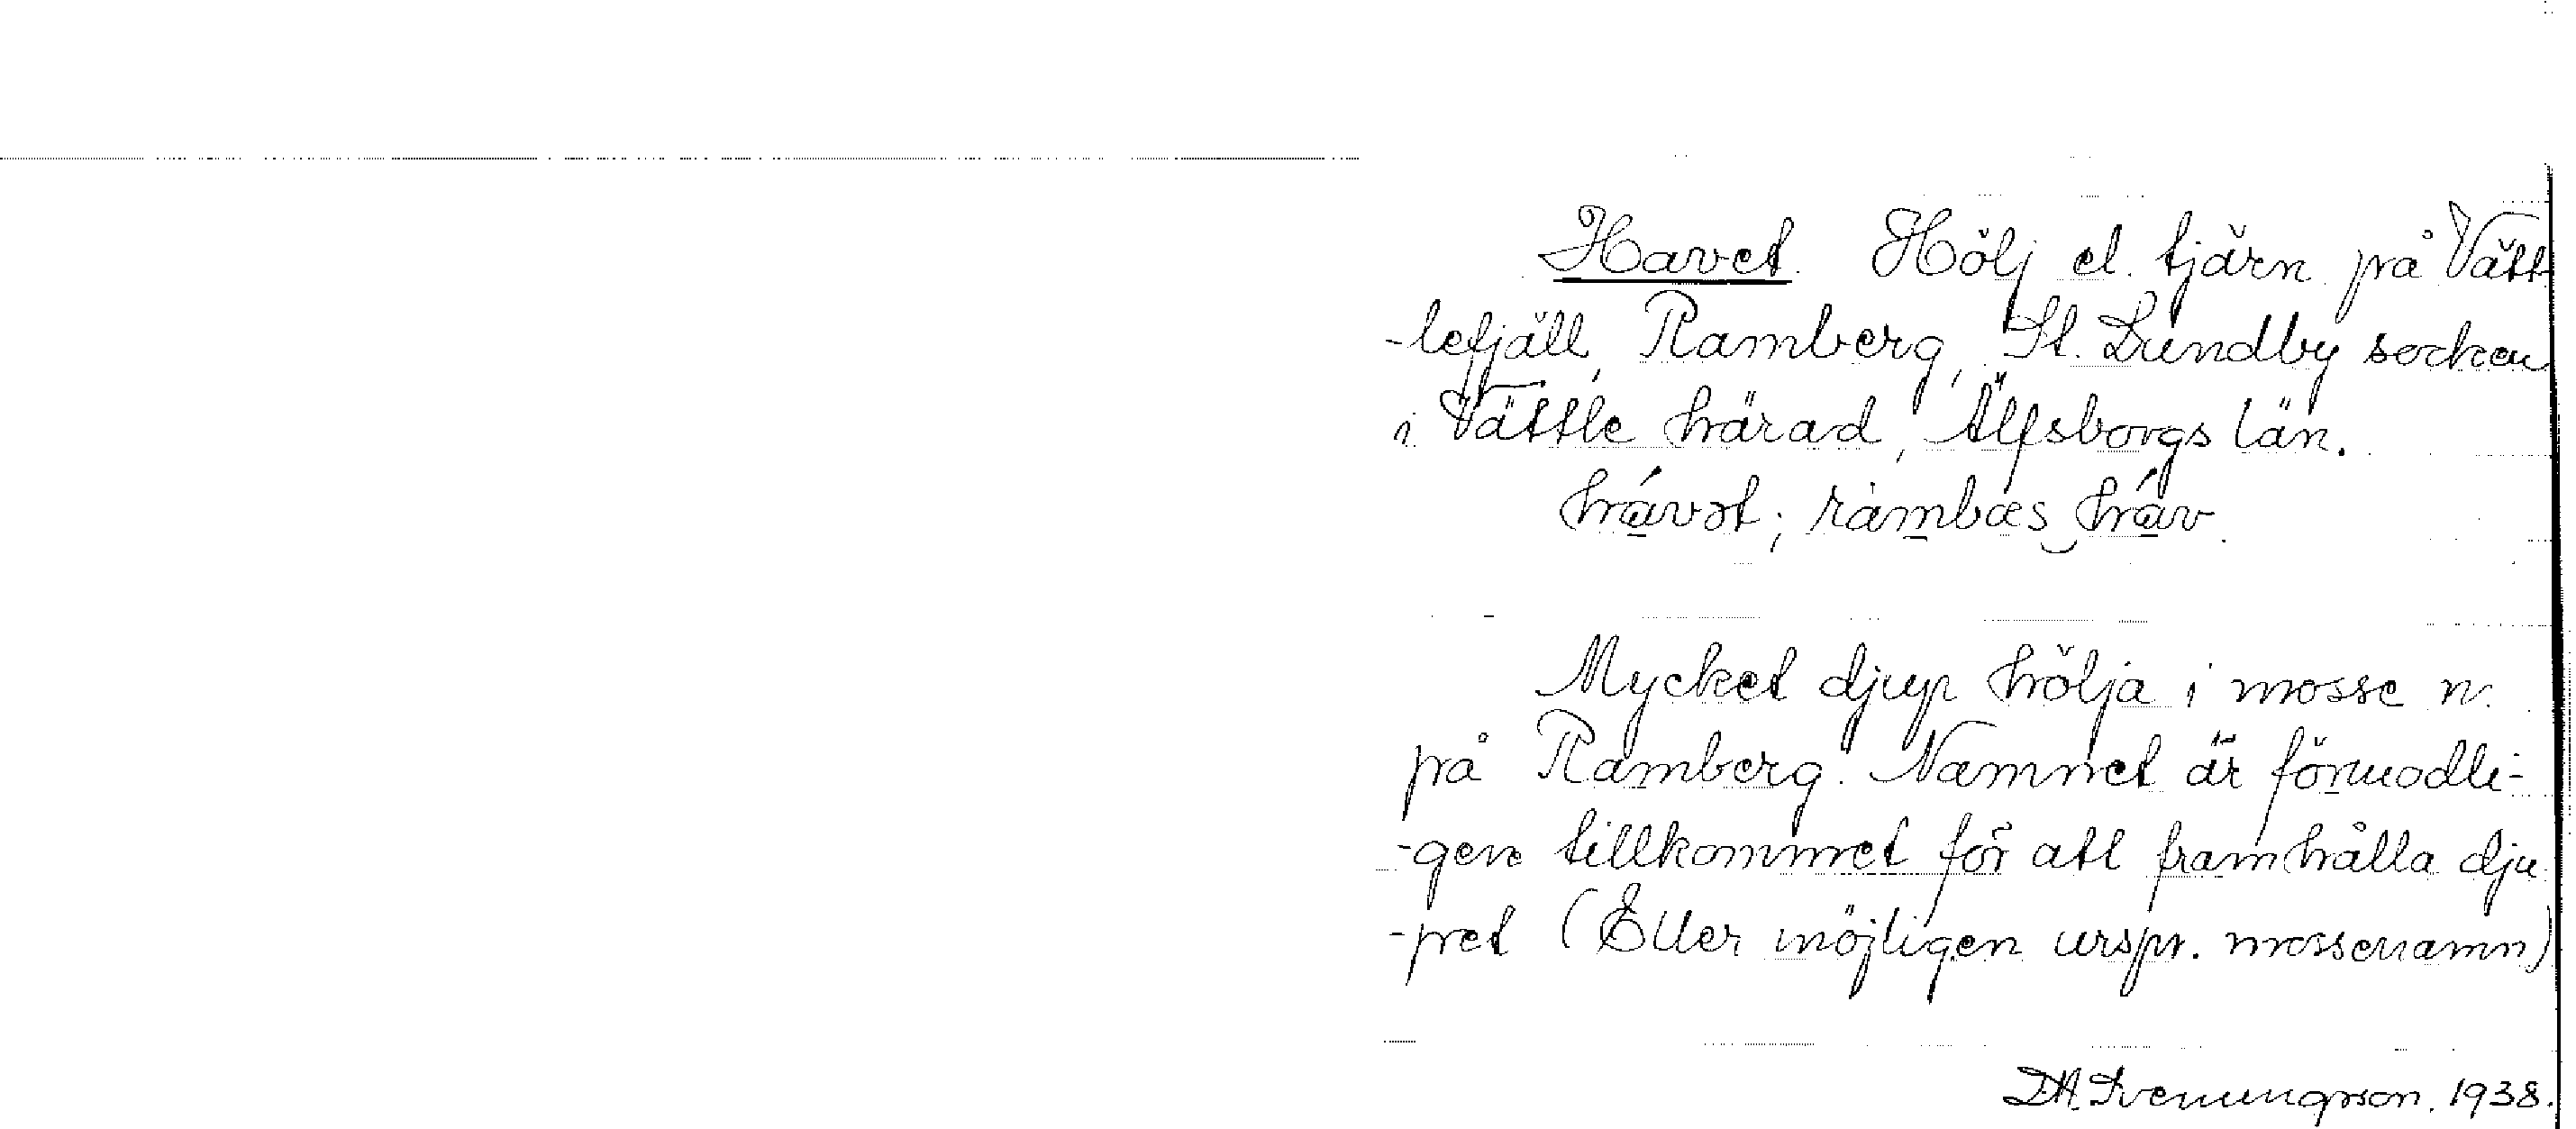 Havet. Hölj el. tjärn på Vätt-
-lefjäll, Ramberg, St. Lundby socken
i Vättle härad, Älfsborgs län.
hávət; rambæs háv.
Mycket djup hölja i mosse n.
på Ramberg. Namnet är förmodli-
-gen tillkommet för att framhålla dju-
-pet (Eller möjligen urspr. mossenamn)
1938.